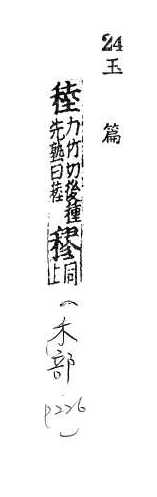 24
玉篇
稑力竹切後種
先熟曰稑
穋同
上
(禾部
p226)